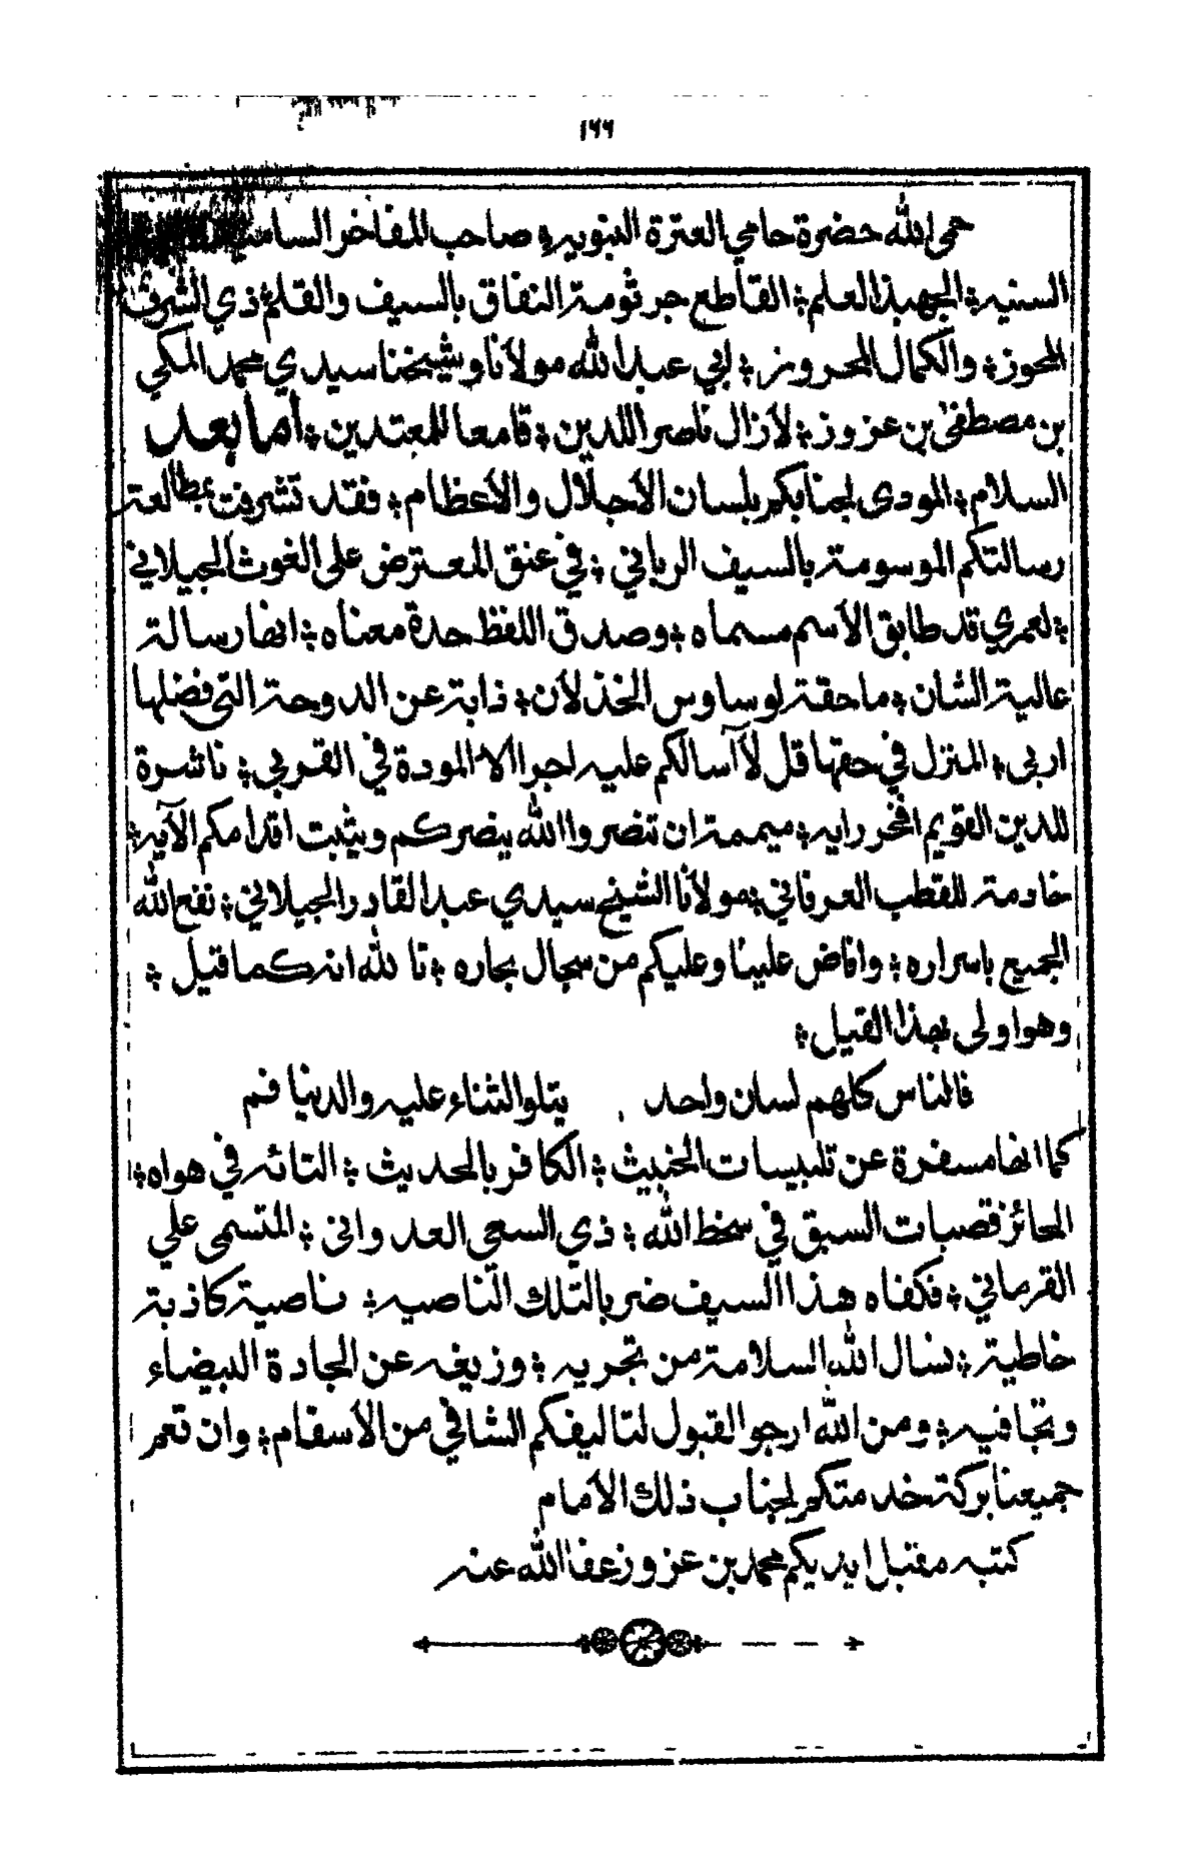 ١٦٦
حمى الله حضرة حامي العترة النبويه؛ صاحب المفاخر السامية
السنيه؛ الجهبذ العلم؛ القاطع جرثومة النفاق بالسيف والقلم؛ ذي الشرف
المحوز؛ والكمال المحروز؛ ابي عبد الله مولانا وشيخنا سيدي محمد المكي
بن مصطفى بن عزوز؛ لازال ناصرا للدين؛ قامعا للمعتدين؛ أما بعد
السلام؛ المودى لجنابكم بلسان الأجلال والأعظام؛ فقد تشرفت بمطالعة
رسالتكم الموسومة بالسيف الرباني؛ في عنق المعترض على الغوث الجيلاني
؛ لعمري قد طابق الأسم مسماه؛ وصدق اللفظ حدة معناه؛ انها رسالة
عالية الشان؛ ماحقة لوساوس الخذلان؛ ذابة عن الدوحة التي فضلها
اربى؛ المنزل في حقها قل لا آسالكم عليه اجرا الا المودة في القربي؛ ناشرة
للدين القويم افخر رايه؛ ميممة ان تنصروا الله ينصركم ويثبت اقدامكم الآيه؛
خادمة للقطب العرفاني؛ مولانا الشيخ سيدي عبد القادر الجيلاني؛ نفع الله
الجميع باسراره؛ وافاض علينا وعليكم من سجال بحاره؛ تا لله انه كما قيل؛
وهو اولى بهذا القيل؛
فالناس كلهم لسان واحد يتلو الثناء عليه والدنيا فم
كما انها مسفرة عن تلبيسات الخبيث؛ الكافر بالحديث؛ التائه في هواه؛
الحائز قصبات السبق في سخط الله؛ ذي السعي العدوانى؛ المتسمى علي
القرماني؛ فكفاه هذا السيف ضربا لتلك الناصيه؛ ناصية كاذبة
خاطية؛ نسال الله السلامة من تجريه؛ وزيغه عن الجادة البيضاء
وتجافيه؛ ومن الله ارجو القبول لتاليفكم الشافي من الأسقام؛ وان تعمر
جميعنا بركة خدمتكم لجناب ذلك الأمام
كتبه مقبل ايديكم محمد بن عزوز عفا الله عنه